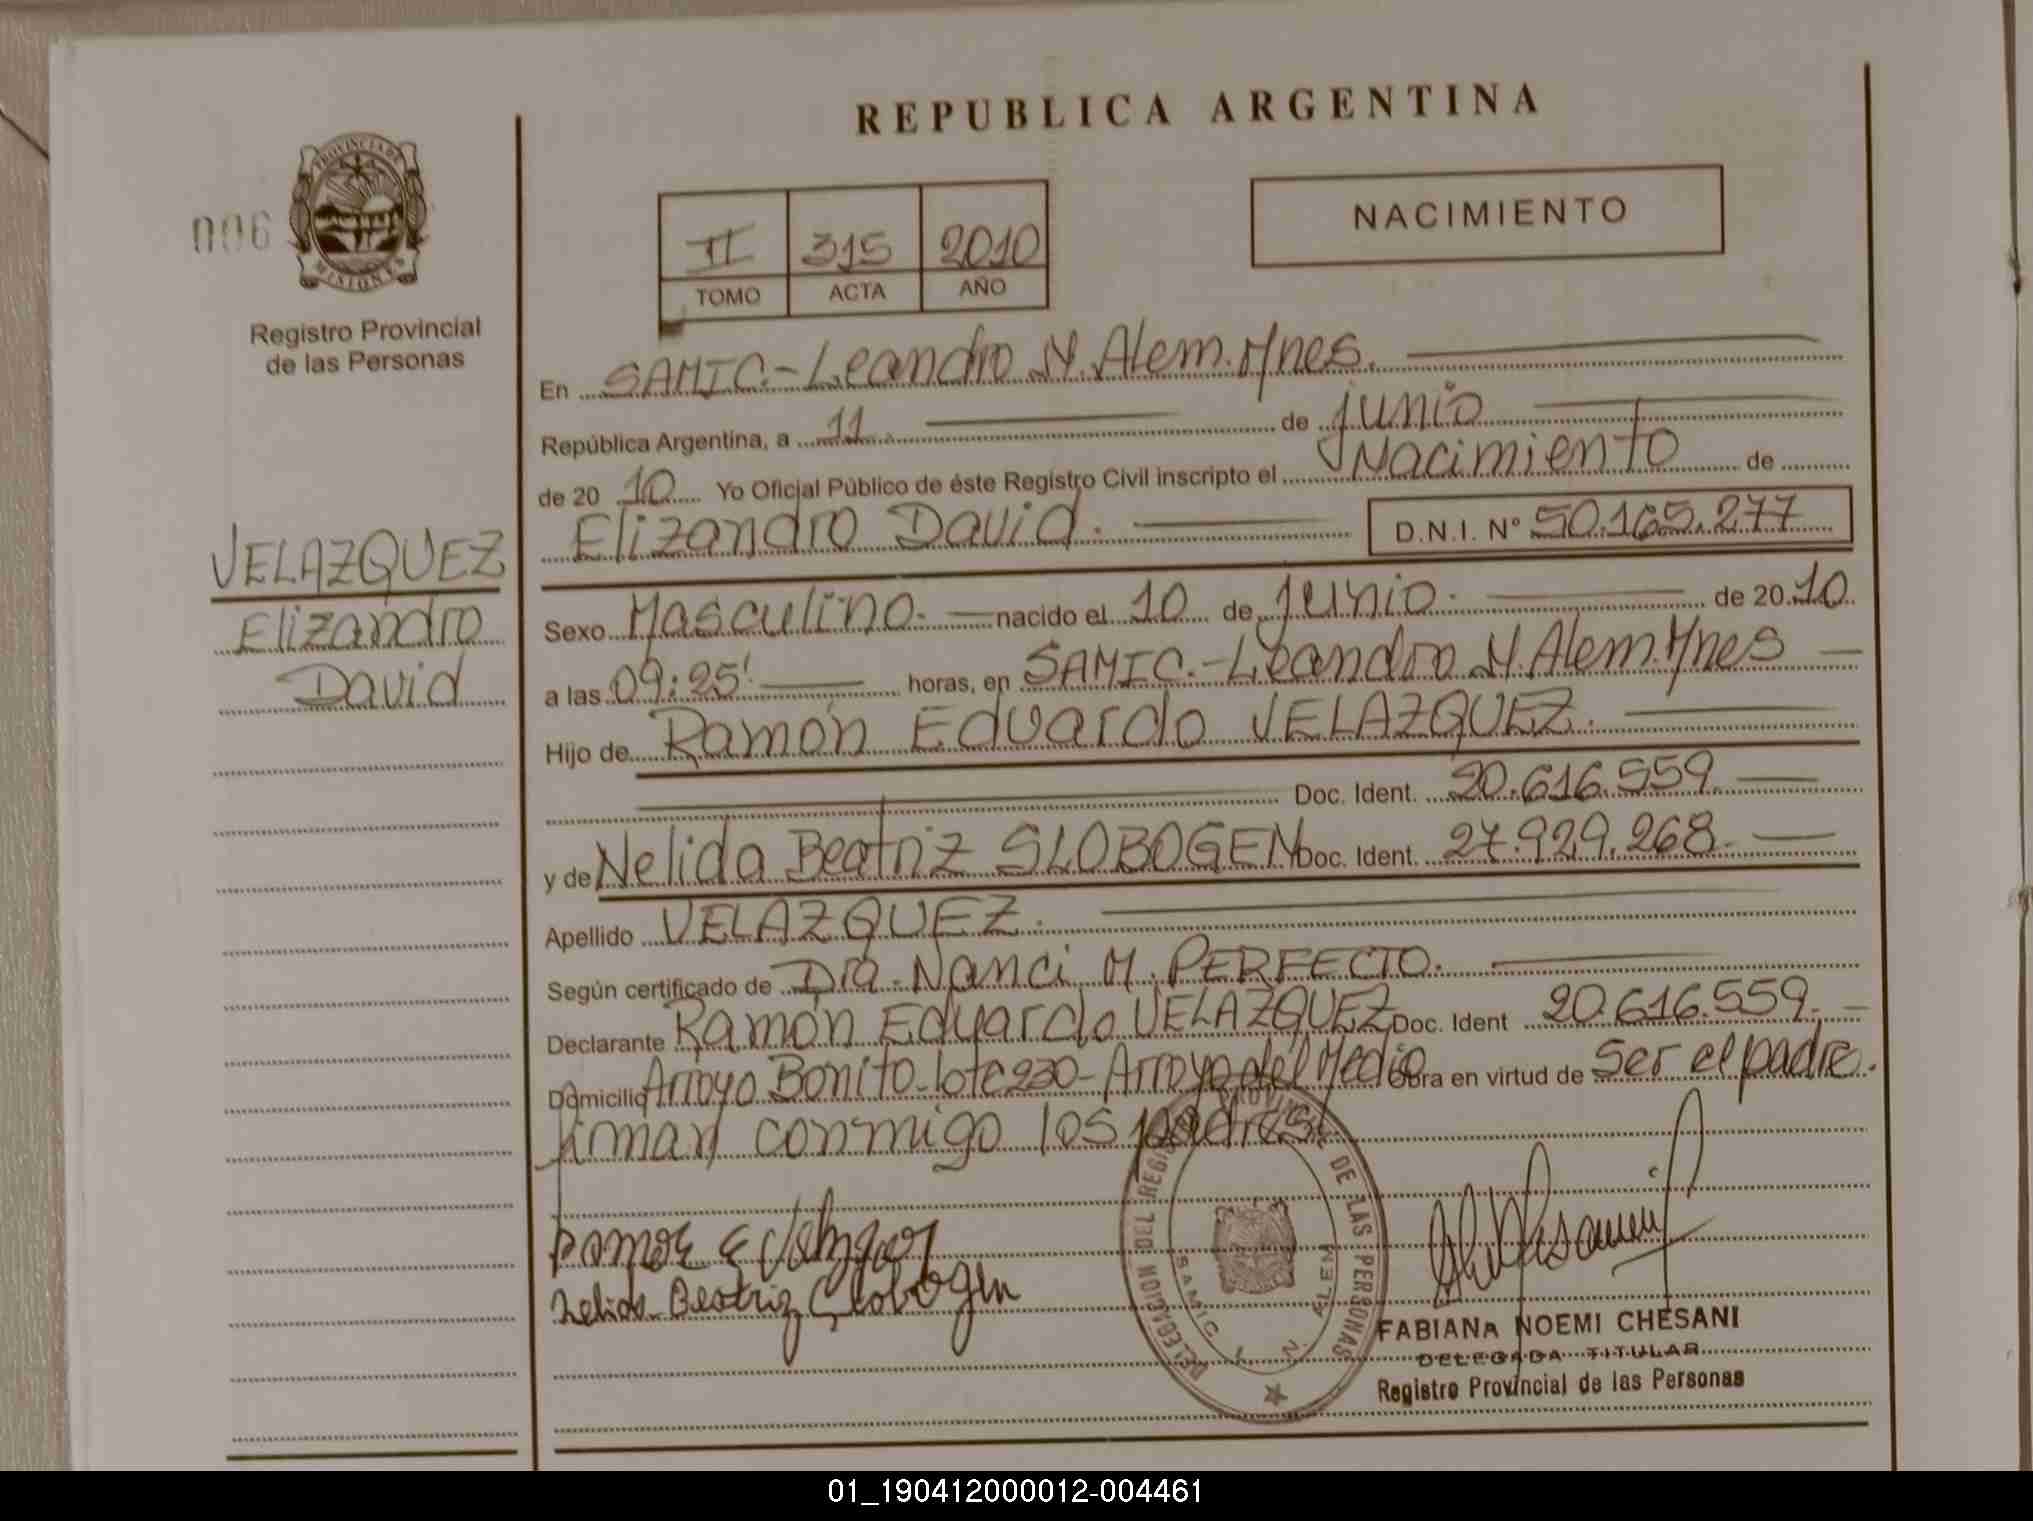 REPUBLICA ARGENTINA
PROVINCIA DE
MISIONES
006
NACIMIENTO
II 315 2010
TOMO ACTA AÑO
Registro Provincial
de las Personas
En SAMIC.-Leandro N. Alem. Mnes.
República Argentina, a 11 de junio
de 20 10 Yo Oficial Público de éste Registro Civil inscripto el Nacimiento de
Elizandro David. D.N.I. N° 50.165.277
VELAZQUEZ
Elizandro
David
Sexo Masculino. nacido el 10 de junio. de 20 10
a las 09:25' horas, en SAMIC.-Leandro N. Alem. Mnes
Hijo de Ramón Eduardo VELAZQUEZ.
Doc. Ident. 20.616.559.
y de Nelida Beatriz SLOBOGEN Doc. Ident. 27.929.268.
Apellido VELAZQUEZ.
Según certificado de Dra. Nanci M. PERFECTO.
Declarante Ramón Eduardo VELAZQUEZ Doc. Ident 20.616.559.
Domicilio Arroyo Bonito-lote 230-Arroyo del Medio Obra en virtud de ser el padre.
firman conmigo los padres
DELEGACION DEL REGISTRO PROVINCIAL DE LAS PERSONAS
SAMIC L. N. ALEM
Ramon E Velazquez
Nelida Beatriz Slobogen
FABIANA NOEMI CHESANI
DELEGADA TITULAR
Registro Provincial de las Personas
01_190412000012-004461